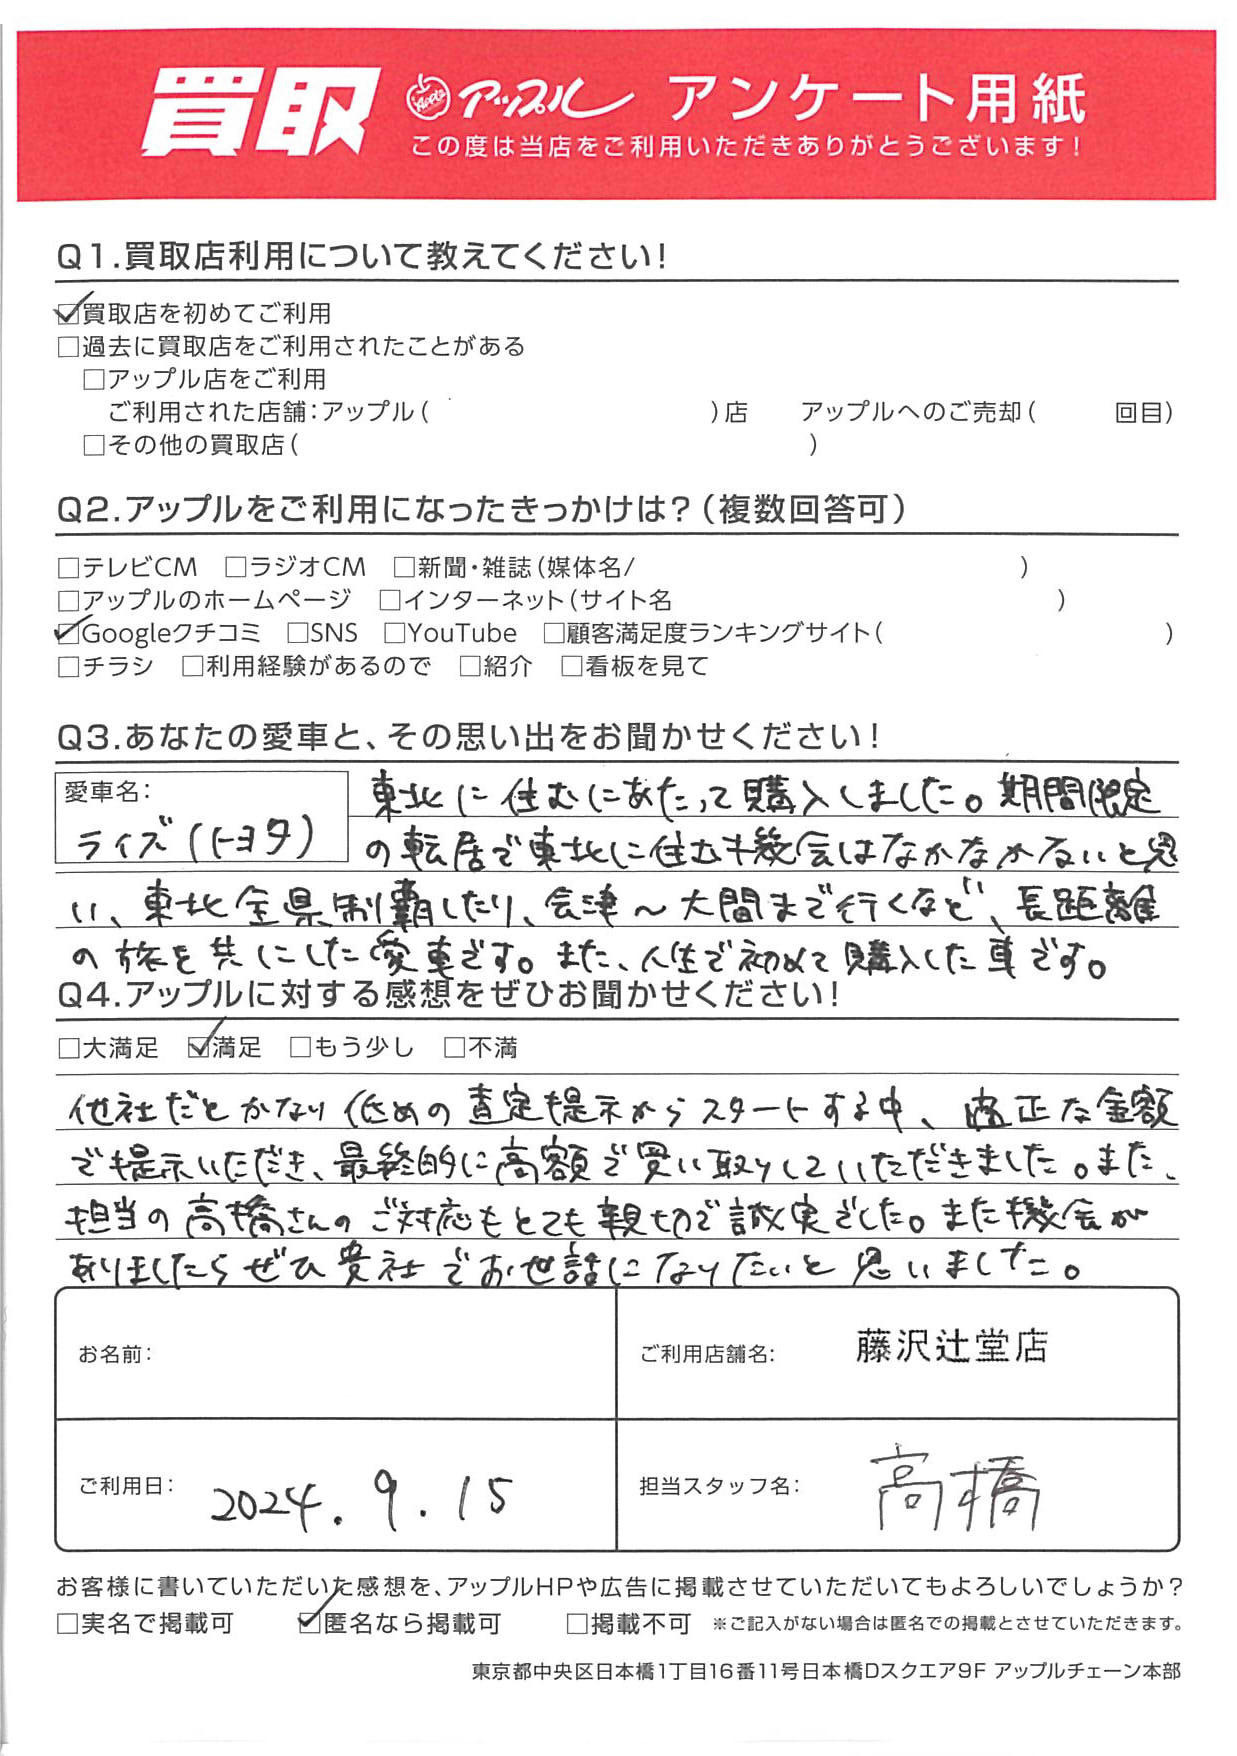 買取 Apple アップル アンケート用紙
この度は当店をご利用いただきありがとうございます!
Q1.買取店利用について教えてください!
☑買取店を初めてご利用
□過去に買取店をご利用されたことがある
□アップル店をご利用
ご利用された店舗:アップル( )店 アップルへのご売却( 回目)
□その他の買取店( )
Q2.アップルをご利用になったきっかけは?(複数回答可)
□テレビCM □ラジオCM □新聞・雑誌(媒体名/ )
□アップルのホームページ □インターネット(サイト名 )
☑Googleクチコミ □SNS □YouTube □顧客満足度ランキングサイト( )
□チラシ □利用経験があるので □紹介 □看板を見て
Q3.あなたの愛車と、その思い出をお聞かせください!
愛車名:
ライズ(トヨタ)
東北に住むにあたって購入しました。期間限定
の転居で東北に住む機会はなかなかないと思
い、東北全県制覇したり、会津～大間まで行くなど、長距離
の旅を共にした愛車です。また、人生で初めて購入した車です。
Q4.アップルに対する感想をぜひお聞かせください!
□大満足 ☑満足 □もう少し □不満
他社だとかなり低めの査定提示からスタートする中、適正な金額
で提示いただき、最終的に高額で買い取りしていただきました。また、
担当の高橋さんのご対応もとても親切で誠実でした。また機会が
ありましたらぜひ貴社でお世話になりたいと思いました。
お名前:
ご利用店舗名: 藤沢辻堂店
ご利用日: 2024.9.15
担当スタッフ名: 高橋
お客様に書いていただいた感想を、アップルHPや広告に掲載させていただいてもよろしいでしょうか?
□実名で掲載可 ☑匿名なら掲載可 □掲載不可 ※ご記入がない場合は匿名での掲載とさせていただきます。
東京都中央区日本橋1丁目16番11号日本橋Dスクエア9F アップルチェーン本部